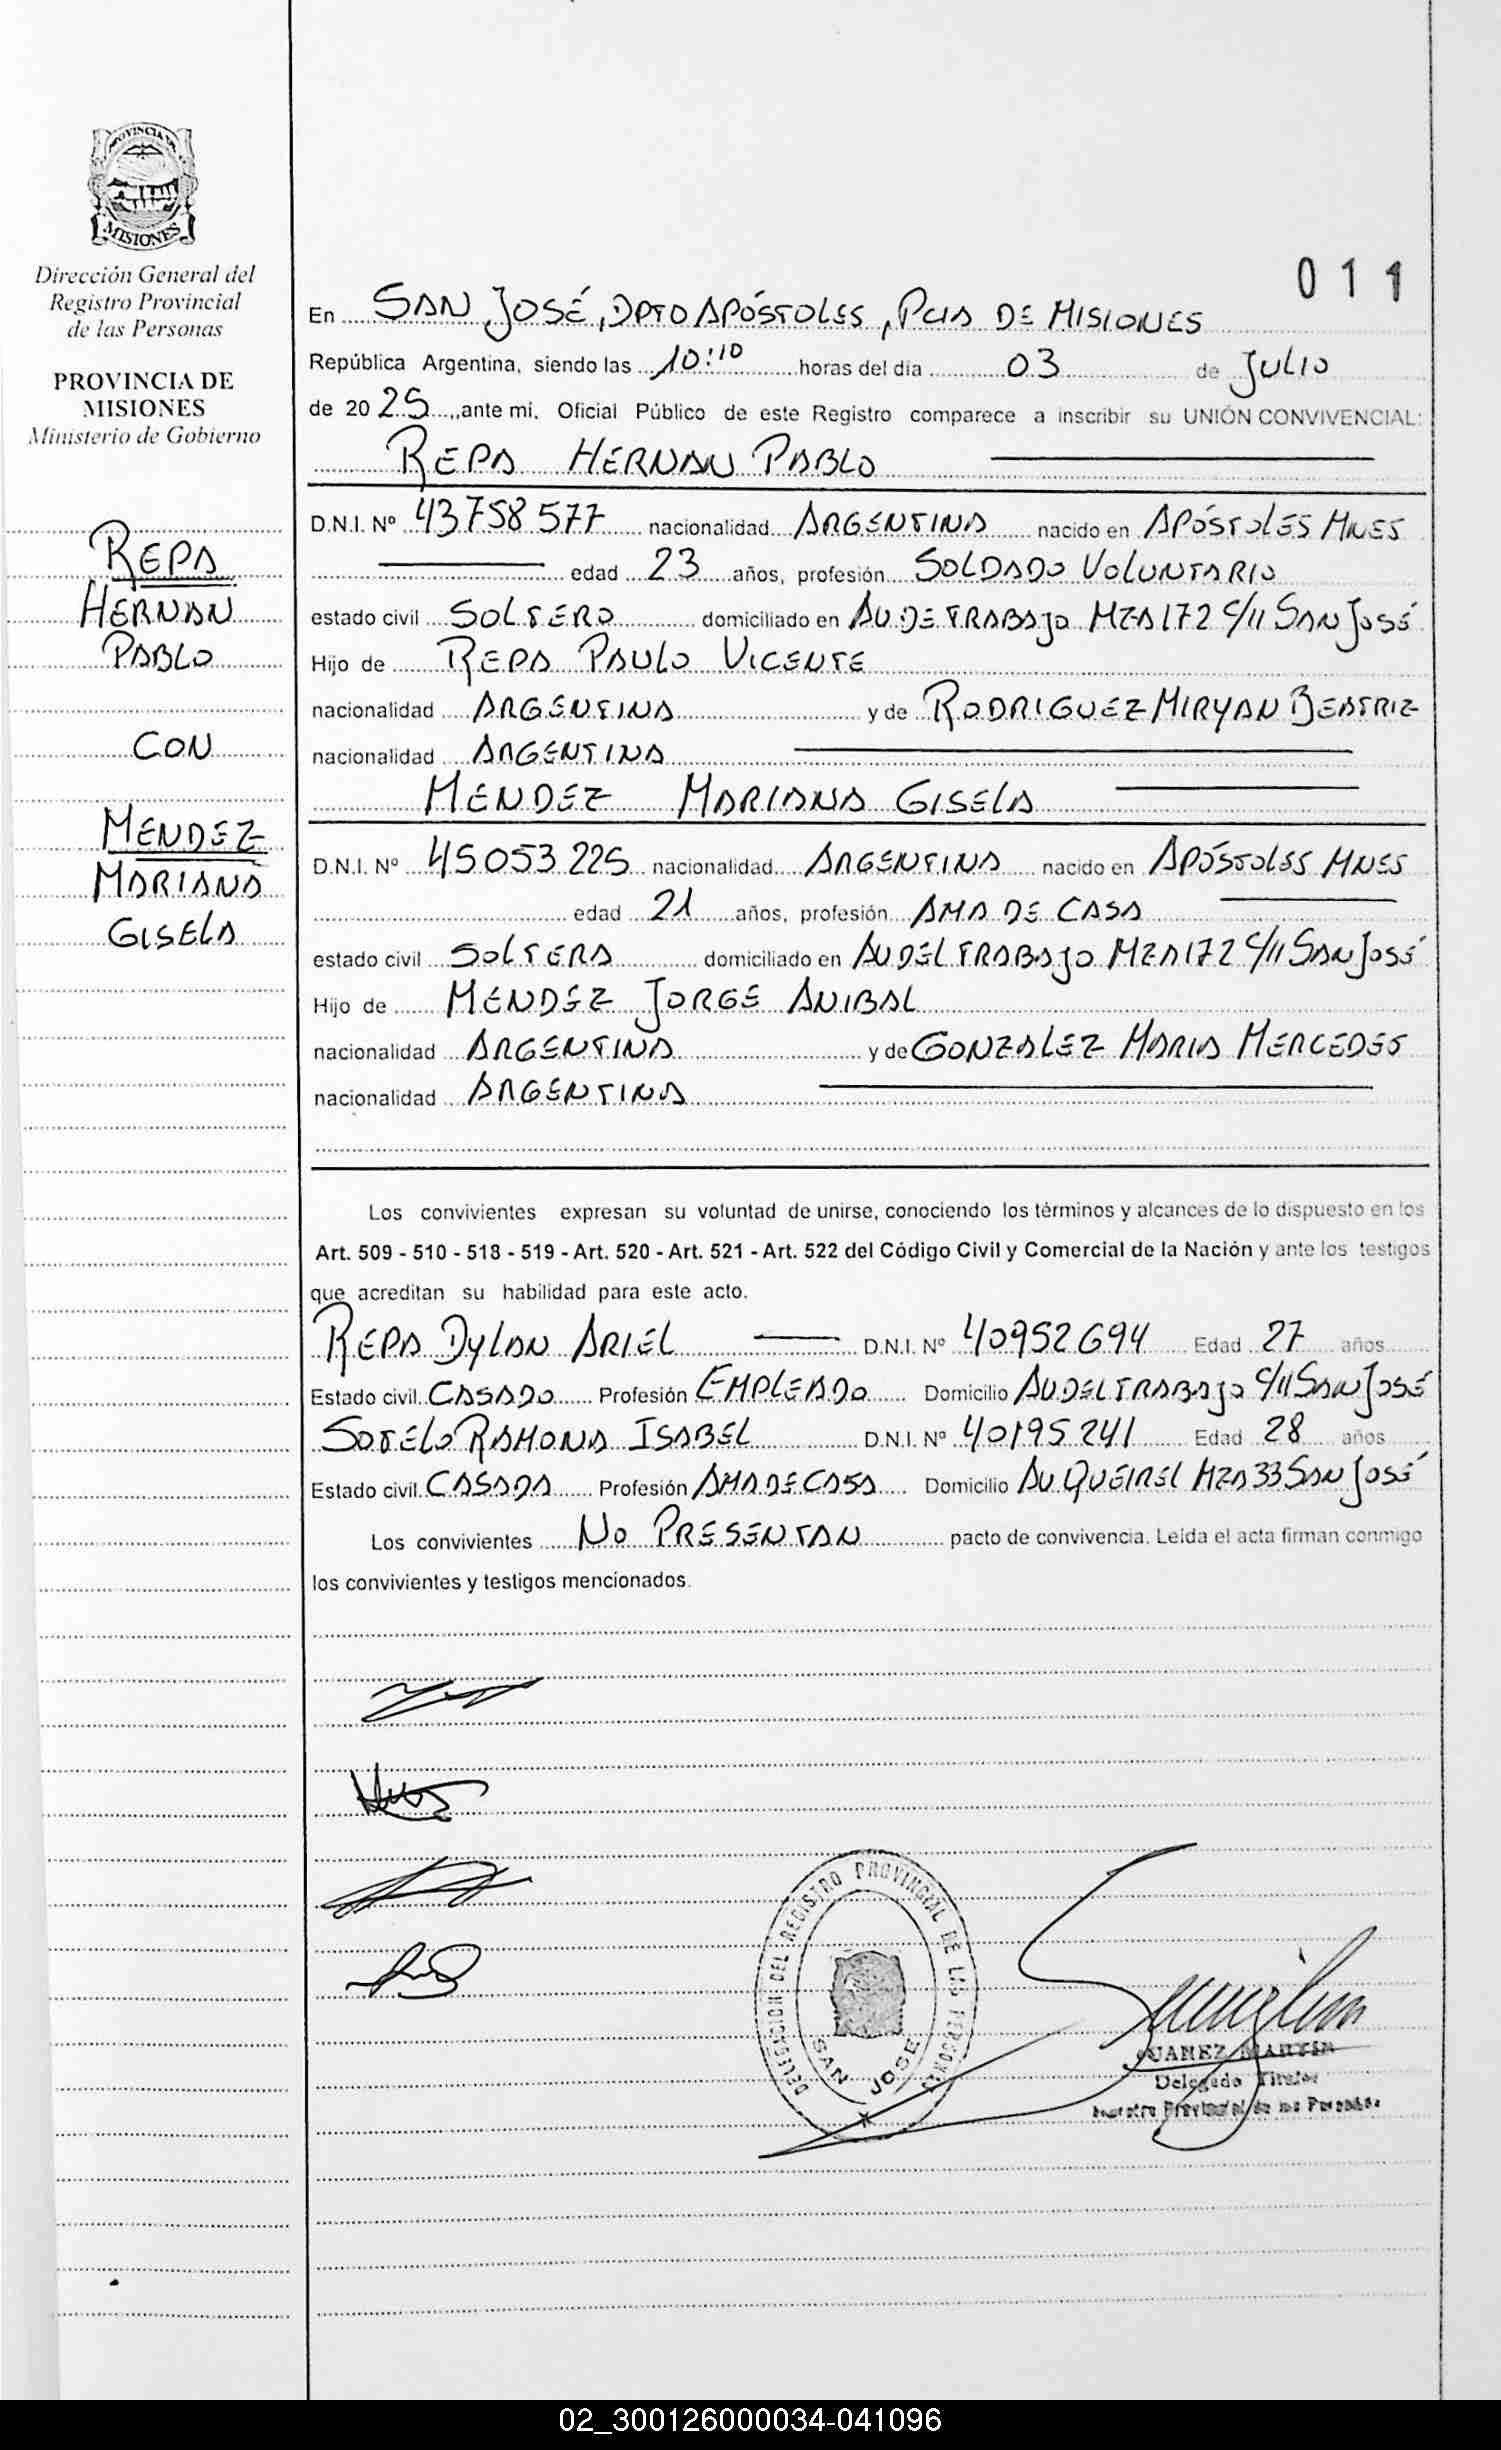 PROVINCIA DE
MISIONES
Dirección General del
Registro Provincial
de las Personas
PROVINCIA DE
MISIONES
Ministerio de Gobierno
REPA
HERNAN
PABLO
CON
MENDEZ
MARIANA
GISELA
011
En SAN JOSÉ, DPTO APÓSTOLES, PCIA DE MISIONES
República Argentina, siendo las 10:10 horas del día 03 de JULIO
de 2025, ante mi, Oficial Público de este Registro comparece a inscribir su UNIÓN CONVIVENCIAL:
REPA HERNAN PABLO
D.N.I. Nº 43758577 nacionalidad ARGENTINA nacido en APÓSTOLES MNES
edad 23 años, profesión SOLDADO VOLUNTARIO
estado civil SOLTERO domiciliado en AV. DE TRABAJO MZA 172 C/11 SAN JOSÉ
Hijo de REPA PAULO VICENTE
nacionalidad ARGENTINA y de RODRIGUEZ MIRYAN BEATRIZ
nacionalidad ARGENTINA
MENDEZ MARIANA GISELA
D.N.I. Nº 45053225 nacionalidad ARGENTINA nacido en APÓSTOLES MNES
edad 21 años, profesión AMA DE CASA
estado civil SOLTERA domiciliado en AV DEL TRABAJO MZA 172 C/11 SAN JOSÉ
Hijo de MENDEZ JORGE ANIBAL
nacionalidad ARGENTINA y de GONZALEZ MARIA MERCEDES
nacionalidad ARGENTINA
Los convivientes expresan su voluntad de unirse, conociendo los términos y alcances de lo dispuesto en los
Art. 509 - 510 - 518 - 519 - Art. 520 - Art. 521 - Art. 522 del Código Civil y Comercial de la Nación y ante los testigos
que acreditan su habilidad para este acto.
REPA DYLAN ARIEL D.N.I. Nº 40952694 Edad 27 años
Estado civil CASADO Profesión EMPLEADO Domicilio AV DEL TRABAJO C/11 SAN JOSÉ
SOTELO RAMONA ISABEL D.N.I. Nº 40195241 Edad 28 años
Estado civil CASADA Profesión AMA DE CASA Domicilio AV QUEIREL MZA 33 SAN JOSÉ
Los convivientes NO PRESENTAN pacto de convivencia. Leída el acta firman conmigo
los convivientes y testigos mencionados.
DELEGACION DEL REGISTRO PROVINCIAL DE LAS PERSONAS
SAN JOSE
MARTIN
Delegado Titular
Registro Provincial de las Personas
02_300126000034-041096